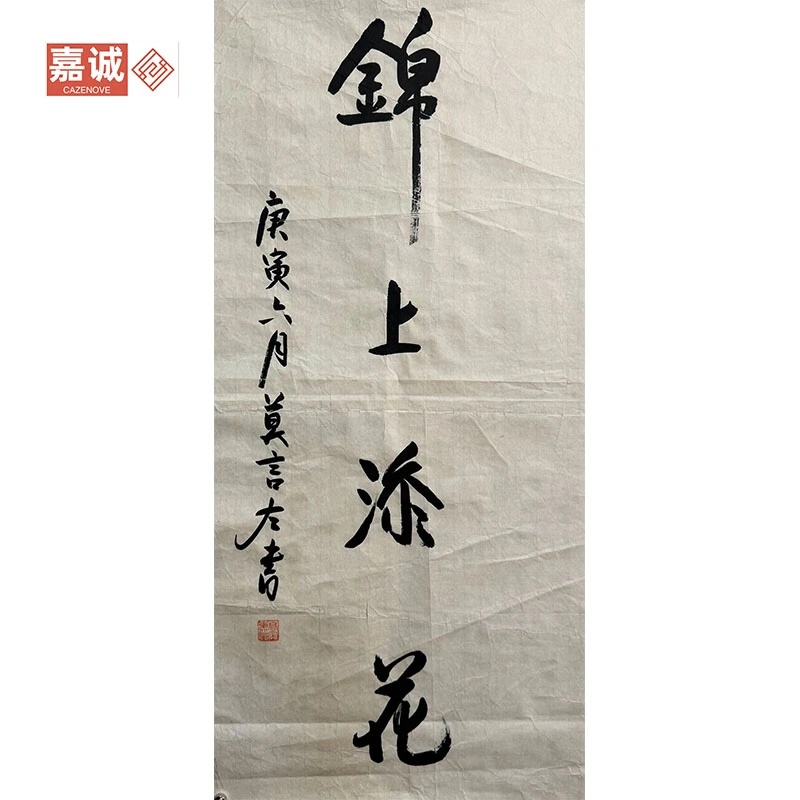 嘉诚
CAZENOVE
錦上添花
庚寅六月莫言左書